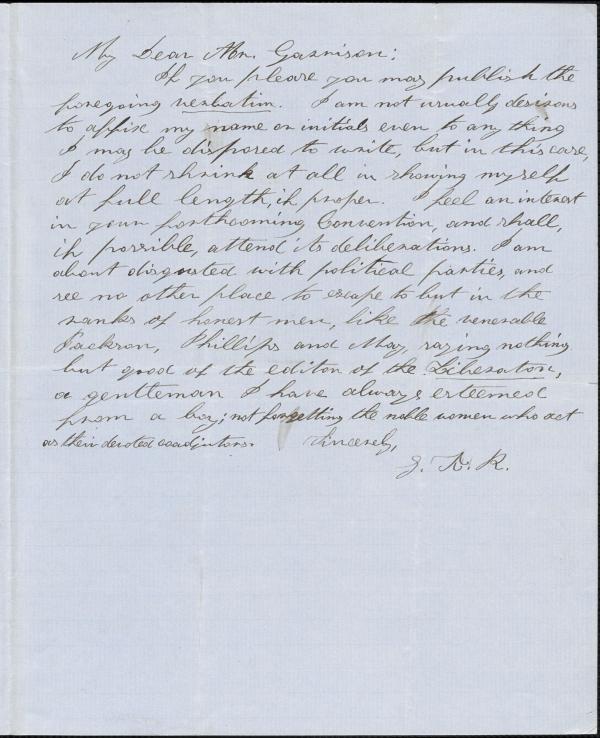 My Dear Mr. Garrison:
If you please you may publish the
foregoing verbatim. I am not usually desirous
to affix my name or initials even to any thing
I may be disposed to write, but in this case,
I do not shrink at all in showing myself
at full length, if proper. I feel an interest
in your forthcoming Convention, and shall,
if possible, attend its deliberations. I am
about disgusted with political parties, and
see no other place to escape to but in the
ranks of honest men, like the venerable
Jackson, Phillips and May, saying nothing
but good of the editor of the Liberator,
a gentleman I have always esteemed
from a boy; not forgetting the noble women who act
as their devoted coadjutors. Sincerely,
J. R.